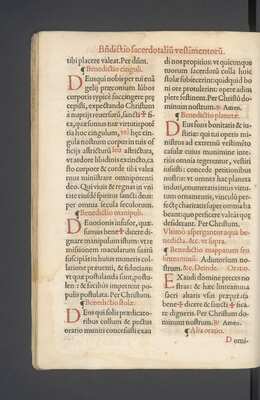 Bñdictio sacerdotaliũ vestimentorũ.
tibi placere valeat. Per dñm.
¶ Benedictio cinguli.
Deus qui nobis per tui
gelij præconium lũbos
corporis typicé succingere præ
cepisti, expectando Christum
à nuptijs reuersurũ, sancti✠fi
ca, quæsumus
tia hoc cingulum, vel hęc cin
gula nostrum corpus in tuis of
ficijs astricturũ
vt ardore libidinis exincto, ca
sto corpore & corde tibi valea
mus ministrare omnipotenti
deo. Qui viuis & regnas in vni
tate eiusdẽ spiritus sancti deus
per omnia secula seculorum.
¶ Benedictio manipuli.
Deuotionis infusor, quæ
sumus bene✠dicere di
gnare manipulum istum: ut re
missionem macularum sanctã
suscipias in huius muneris col
latione præsenti, & fiducia in
de postulandæ
len: & facilitas impetret po
pulis postulata. Per Christum.
¶ Benedictio stolæ.
Deus qui solis prædicato
ribus collum & pectus
oratorio muniri concessisti exau
di nos propitius: vt quicunque
tuorum sacerdotũ colla huius
stolæ subiecerint: quicquid bo
ni ore protulerint: opere adim
plere festinent. Per Christũ do
minum nostrum. ℟. Amen.
¶ Benedictio planetæ.
Deus fons bonitatis & iu
stitiæ: qui tui operis mi
nistros ad extremũ vestimẽto
casulæ
terius omnia regerentur, vestiri
iussisti: concede petitionibus
nostris: vt omnes hac planeta
induti, enumeratis intus virtu
tum ornamentis, vinculo per
fectę charitatis sanctimonia ha
beant: quo perfecere valeát quę
desiderant. Per Christum.
Vltimò aspergantur aqua bę
nedicta. &c. vt supra.
¶ Benedictio mapparum seu
linteaminũ. Adiutorium no
strum. &c. Deinde. Oratio.
Exaudi domine preces no
stras: & hæc linteamina
sacri altaris vsui præparata
bene✠dicere & sancti✠fica
re digneris. Per Christum do
minum nostrum. ℟. Amen.
¶ Alia oratio.
Domi-